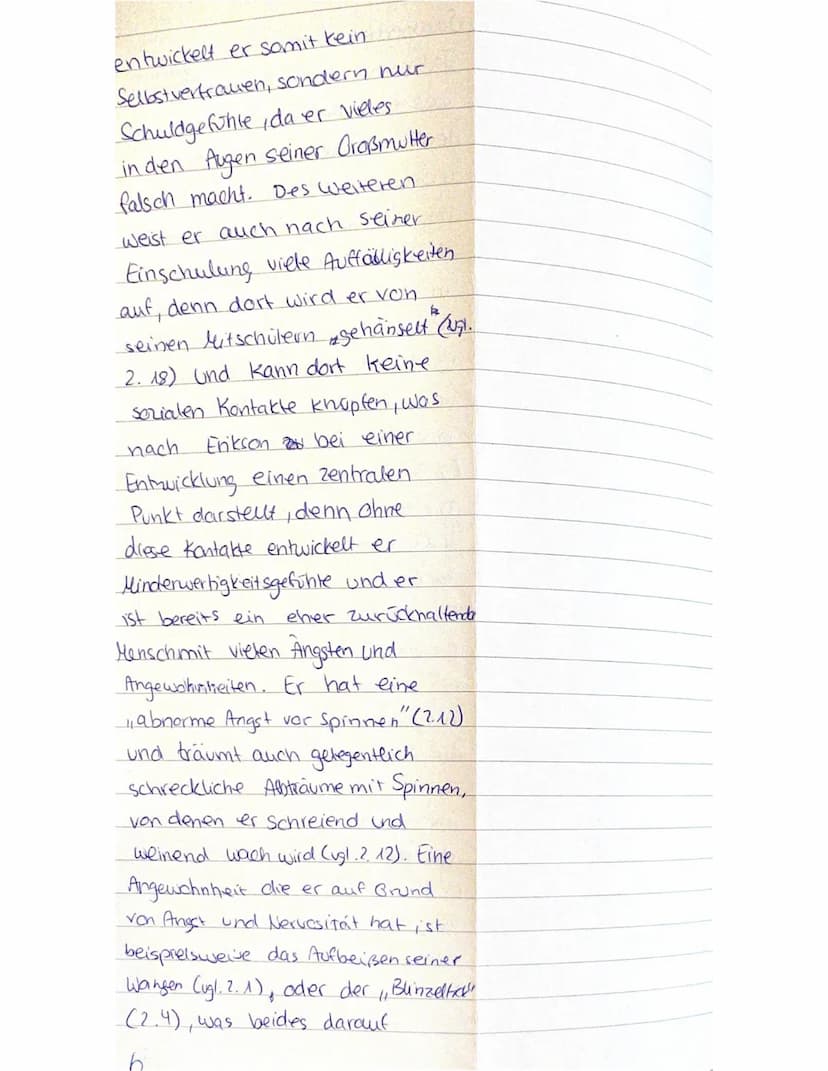 entwickelt er somit kein
Selbstvertrauen, sondern nur
Schuldgefühle, da er vieles
in den Augen seiner Großmutter
falsch macht. Des weiteren
weist er auch nach seiner
Einschulung viele Auffälligkeiten
auf, denn dort wird er von
seinen Mitschülern „gehänselt“ (vgl.
Z. 18) und kann dort keine
sozialen Kontakte knüpfen, was
nach Erikson bei einer
Entwicklung einen zentralen
Punkt darstellt, denn ohne
diese Kontakte entwickelt er
Minderwertigkeitsgefühle und er
ist bereits ein eher zurückhaltender
Mensch mit vielen Ängsten und
Angewohnheiten. Er hat eine
„abnorme Angst vor Spinnen“ (Z.12)
und träumt auch gelegentlich
schreckliche Albträume mit Spinnen,
von denen er schreiend und
weinend wach wird (vgl. Z. 12). Eine
Angewohnheit die er auf Grund
von Angst und Nervosität hat, ist
beispielsweise das Aufbeißen seiner
Wangen (vgl. Z. 1), oder der „Blinzeltick“
(Z.4), was beides darauf
h